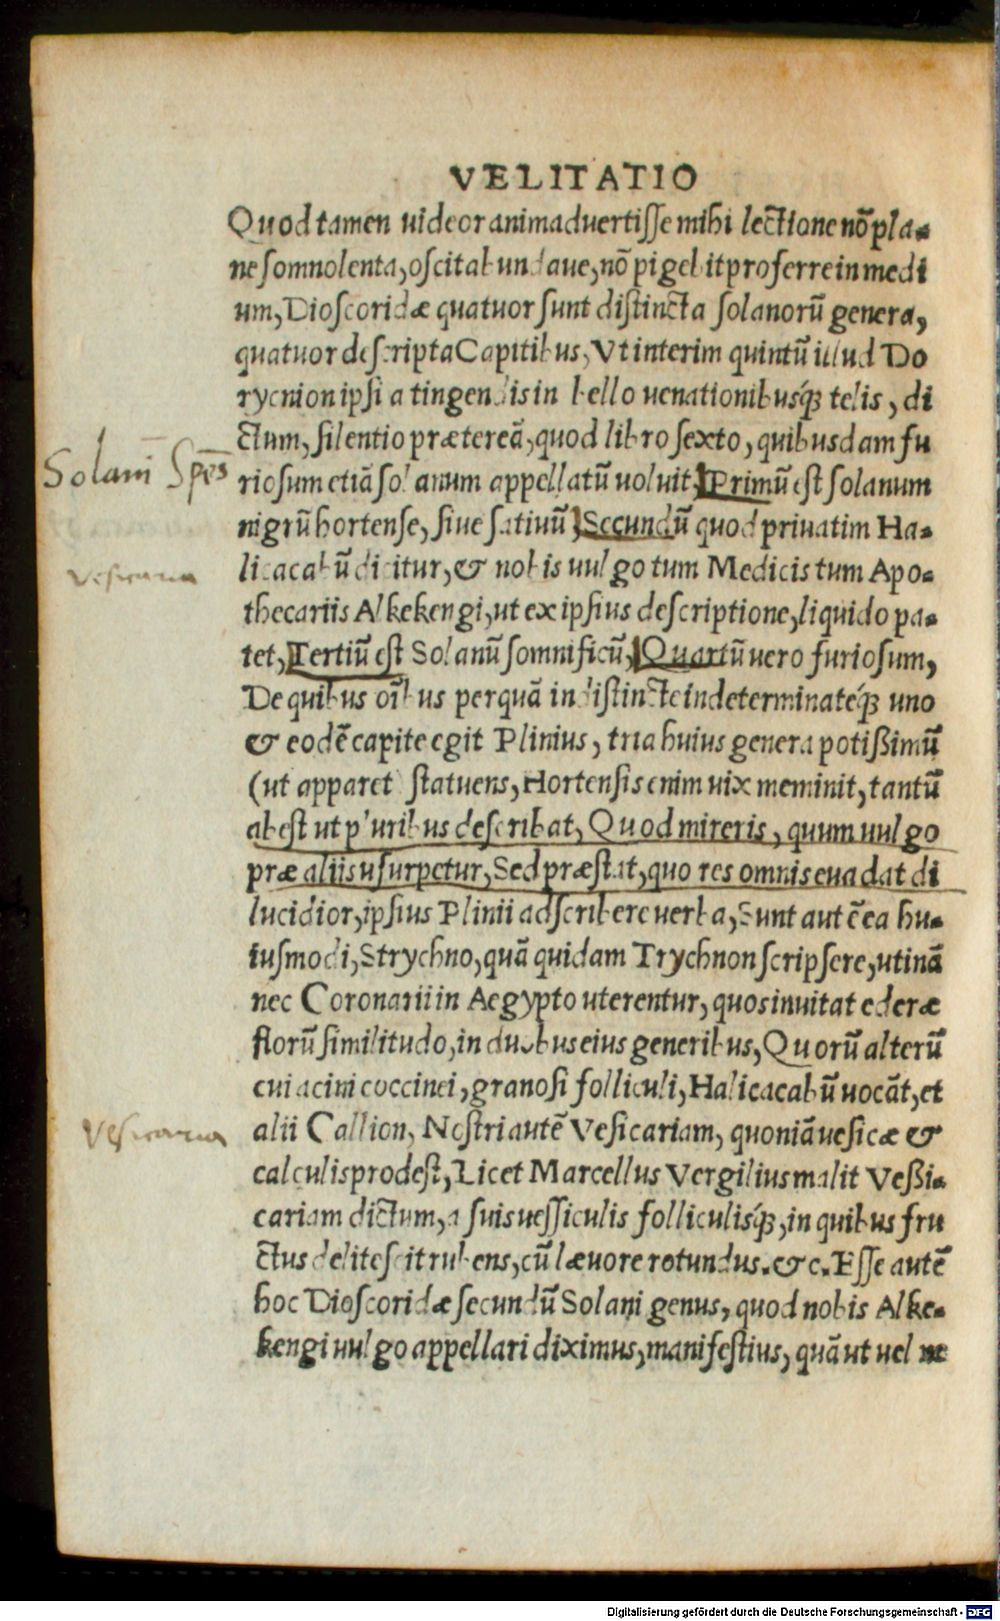 VELITATIO
Quod tamen uideor animaduertiſſe mihi lectione nõ pla-
ne ſomnolenta, oſcitabundaue, nõ pigebit proferre in medi
um, Dioſcoridæ quatuor ſunt diſtincta ſolanorũ genera,
quatuor deſcripta Capitibus, Vt interim quintũ illud Do
rycnion ipſi a tingendis in bello uenationibusq́ꝫ telis, di
ctum, ſilentio præterеã, quod libro ſexto, quibusdam fu
Solani Spēs
rioſum etiã ſolanum appellatũ uoluit, Primũ eſt ſolanum
nigrũ hortenſe, ſiue ſatiuũ, Secundũ quod priuatim Ha-
Vesicaria
licacabũ dicitur, & nobis uulgo tum Medicis tum Apo-
thecariis Alkekengi, ut ex ipſius deſcriptione, liquido pa-
tet, Tertiũ eſt Solanũ ſomnificũ, Quartũ uero furioſum,
De quibus oĩbus perquã indiſtincte indeterminateq́ꝫ uno
& eodẽ capite egit Plinius, tria huius genera potißimũ
(ut apparet ſtatuens, Hortenſis enim uix meminit, tantũ
abeſt ut pluribus deſcribat, Quod mireris, quum uulgo
præ aliis uſurpetur, Sed præſtat, quo res omnis euadat di
lucidior, ipſius Plinii adſcribere uerba, Sunt autẽ ea hu-
iusmodi, Strychno, quã quidam Trychnon ſcripſere, utinã
nec Coronarii in Aegypto uterentur, quos inuitat ederæ
florũ ſimilitudo, in duobus eius generibus, Quorũ alterũ
cui acini coccinei, granoſi folliculi, Halicacabũ uocãt, et
Vesicaria
alii Callion, Noſtri autẽ Veſicariam, quoniã ueſicæ &
calculis prodeſt, Licet Marcellus Vergilius malit Veßi-
cariam dictum, a ſuis ueſſiculis folliculisq́ꝫ, in quibus fru
ctus deliteſcit rubens, cũ læuore rotundus. &c. Eſſe autẽ
hoc Dioſcoridæ ſecundũ Solani genus, quod nobis Alke-
kengi uulgo appellari diximus, manifeſtius, quã ut uel ne
Digitalisierung gefördert durch die Deutsche Forschungsgemeinschaft - DFG